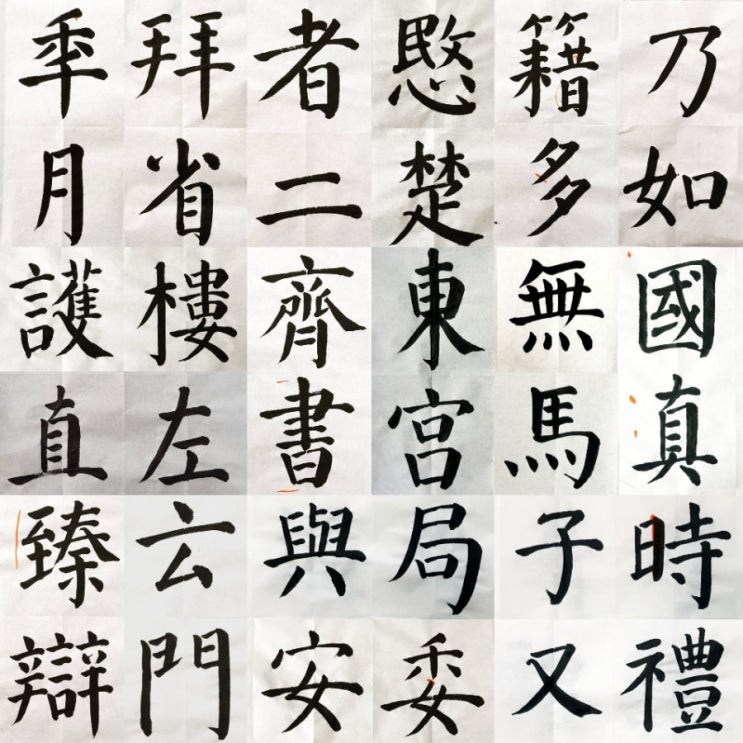 拜者愍籍乃
月省二楚多如
護樓齊東無國
直左書宮馬真
臻云與局子時
辯門安委又禮